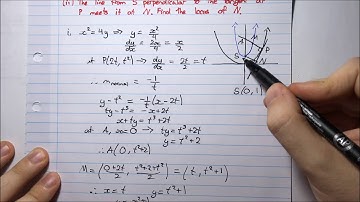 (ii) The line from S perpendicular to the tangent at
P meets it at N. Find the locus of N.
i. x² = 4y ⇒ y = x²/4
dy/dx = 2x/4 = x/2
at P(2t, t²) → dy/dx = 2t/2 = t
∴ m_normal = -1/t
y - t² = -1/t (x - 2t)
ty - t³ = -x + 2t
x + ty = t³ + 2t
at A, x=0 → ty = t³ + 2t
y = t² + 2
∴ A(0, t²+2)
M = (0+2t/2, t²+2+t²/2) = (t, t²+1)
∴ x = t y = t² + 1
A
M
P
S
N
S(0, 1)